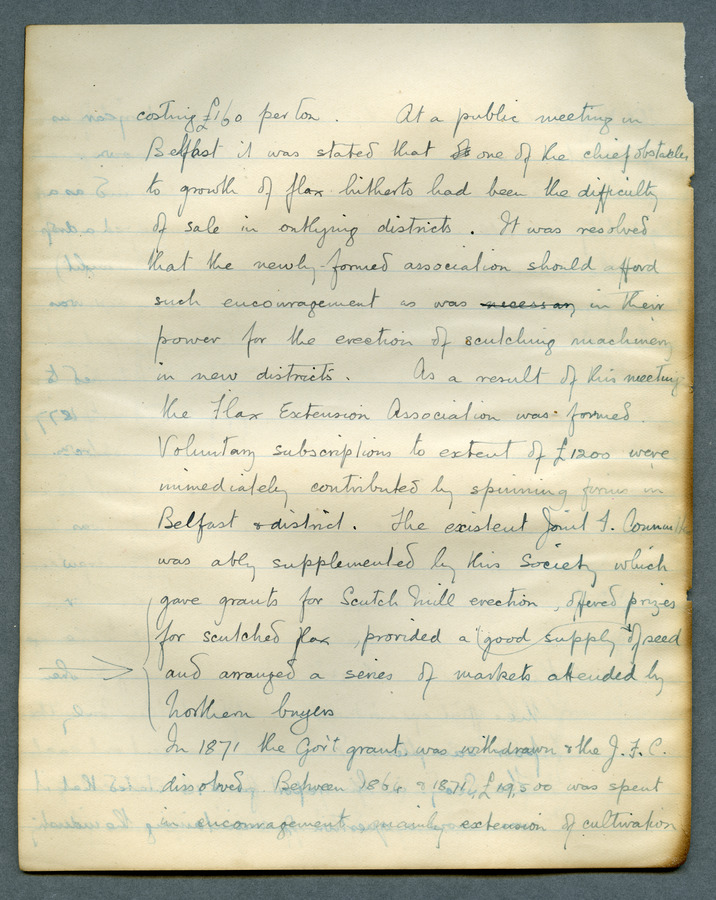 costing £160 per ton. At a public meeting in
Belfast it was stated that one of the chief obstacles
to growth of flax hitherto had been the difficulty
of sale in outlying districts. It was resolved
that the newly-formed association should afford
such encouragement as was necessary in their
power for the erection of scutching machinery
in new districts. As a result of this meeting
the Flax Extension Association was formed.
Voluntary subscriptions to extent of £1200 were
immediately contributed by spinning firms in
Belfast & district. The existent Joint F. Committee
was ably supplemented by this Society which
gave grants for Scutch Mill erection, offered prizes
for scutched flax, provided a "good supply" of seed
and arranged a series of markets attended by
Northern buyers
In 1871 the Gov't grant was withdrawn & the J.F.C.
dissolved. Between 1864 & 1871 £19,500 was spent
in encouragement mainly extension of cultivation